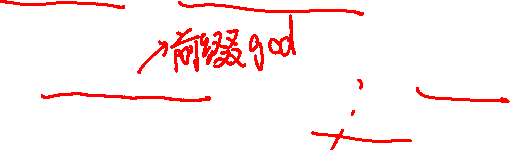 前缀god